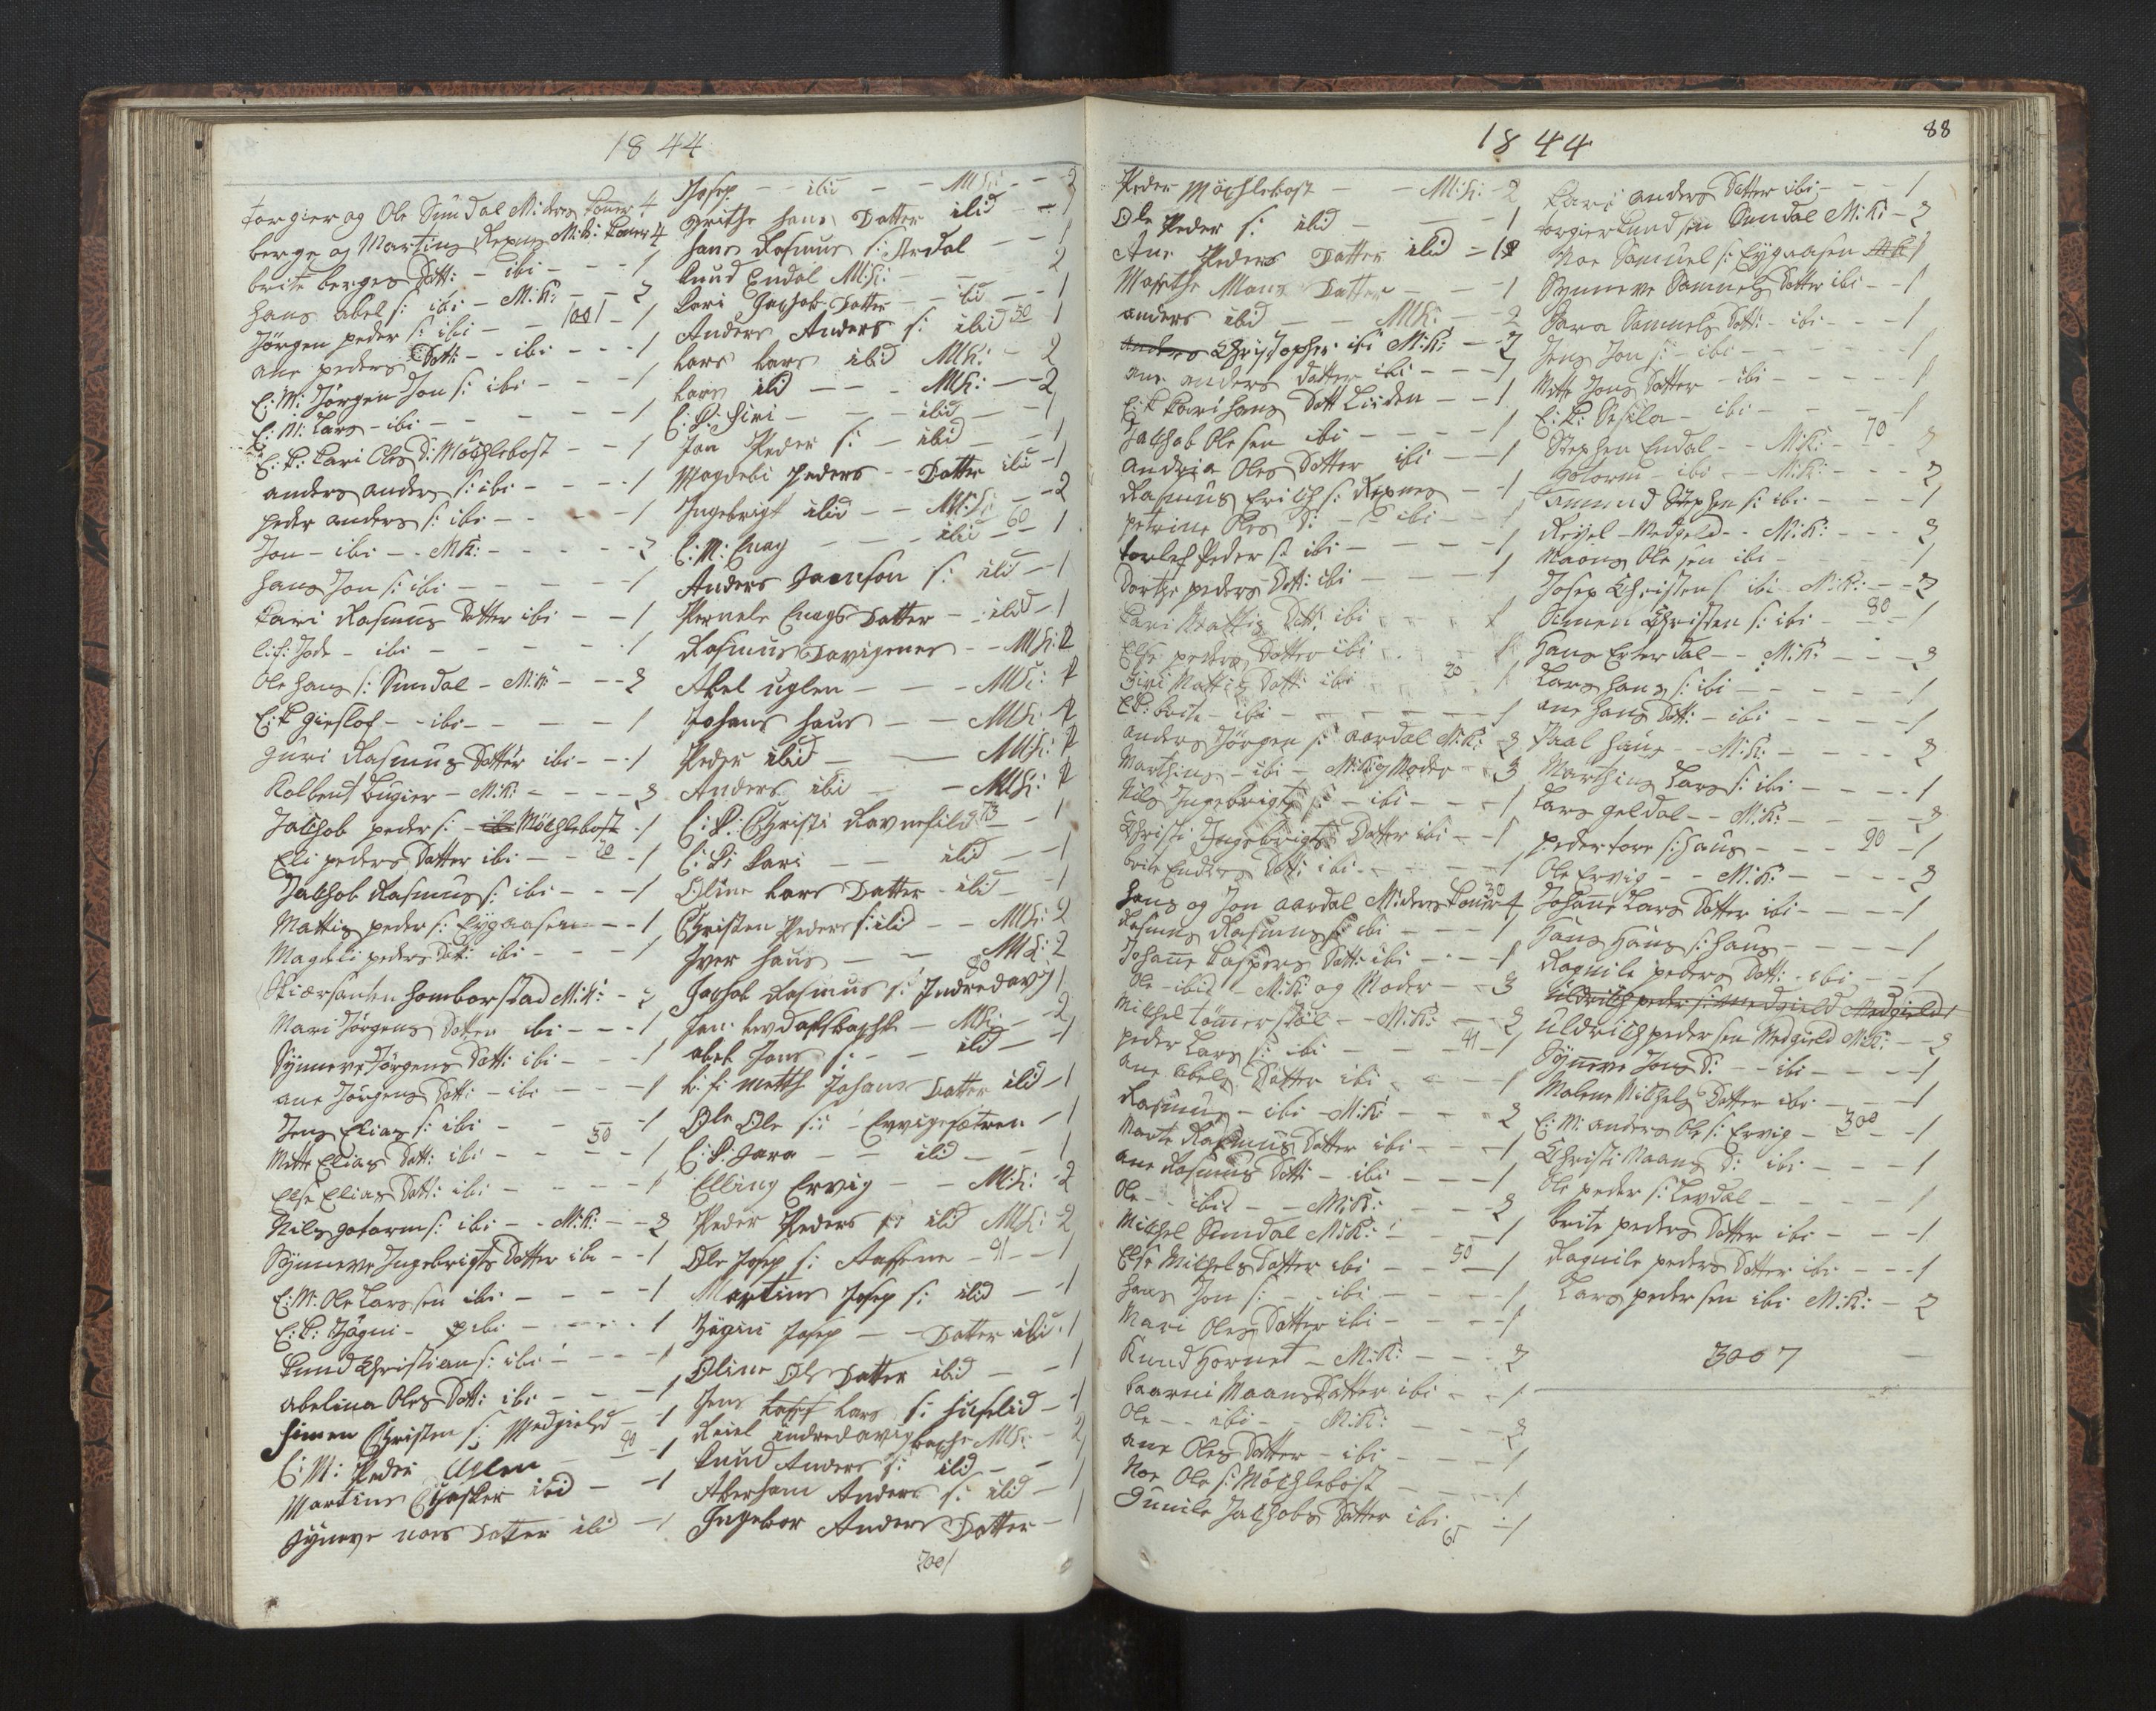 1844
torgier og Ole Sundal M: deres koner 4
berge og Martins Repnes M: k: koner 4
brite berges Dott: - ibi - - - 1
hans abel s: ibi - M: K: - - 2
Jörgen peder s: ibi - - 1001 - 1
ane peders Dott: - - ibi - - - 1
E: M: Jörgen Jon s: ibi - - - 1
E: M: Lars - ibi - - - - - 1
E: K: kari Oles D: Möchlebost - - 1
anders anders s: ibi - - - - 1
peder anders s: ibi - - - - 1
Jon - ibi - - M K: - - - - - 2
hans Jon s: ibi - - - - - 1
kari Rasmus Datter ibi - - 1
- ibi - - - - - - 1
Ole hans s: Sundal - M: K: - - - 2
E: K gieslof - - ibi - - - - - 1
guri Rasmus Datter ibi - - - 1
Kolbent Lugier - M: K: - - - - 2
Jakhob peder s: - ibi Möchlebost - 1
Eli peders Datter ibi - - 20 - 1
Jakhob Rasmus s: ibi - - - 1
Mattis peder s: Eygaasen - - 1
Magdeli peders Dat: ibi - - - 1
homborstad M: K: - 2
Mari Jörgens Datter ibi - - - 1
Synneve Jörgens Datt: ibi - - - 1
ane Jörgens Dott: - ibi - - - - 1
Jens Elias s: ibi - - - - 1
Mette Elias Dott: ibi - - 30 - 1
Else Elias Dott: ibi - - - - - 1
Nils gotorm s: ibi - - M: K: - - 2
Synneve Ingebrigts Datter ibi - - 1
E: M: Ole Larssen ibi - - - - 1
E: K: - ibi - - - - - 1
knud Christian s: ibi - - - - 1
abelina Oles Datt: ibi - - - - 1
Simen Christen s: Medgield - - 1
E: M: Peder Uglen 40 - 1
Martinus ibid - - 1
Syneve Datter ibid - - 1
Josep - - ibid - - M K: - - 2
Drithe hans Datter ibid - - 1
hans Rasmus s: Ardal - - 1
knud Endal M: K: - - - 2
kari Jachob Datter - - ibid - - 1
Anders Anders s: ibid 50 1
Lars Lars ibid M K: - 2
Lars ibid - - - M K: - - 2
E: K: Siri - - - ibid - - 1
Jon Peder s: - ibid - - 1
Magdebi Peders - - Datter ibid - 1
Ingebrigt ibid - - M: K: - - 2
E: M: Enag - - - ibid 60 - 1
Anders s: ibid - - 1
Pernele Enags Datter - - ibid - 1
Rasmus Davigenes - - M K: 2
Abel Uglen - - - M K: 2
Johans haus - - M K: 2
Peder ibid - - M K: 2
Anders ibid - - M K: 2
E: K: Christi 73 - 1
E: K: kari - - ibid - - 1
Oline Lars Datter - ibid - 1
Christen Peders s: ibid - - M K: 2
Iver haus - - - M K: 2
Jachob Rasmus s: 80 Indredavig 1
Jan - M K: - - 2
abel Jans s: - - ibid - - 1
Johans Datter ibid - 1
Ole Ole s: - Ervigesætren - 1
E: K: Sara - - ibid - - 1
Elling Ervig - - M: K: - 2
Peder Peders s: ibid M K: 2
Ole Josep s: Aassene - 91 - - 1
Martins Josep s: ibid - - 1
Josep - - Datter ibid - 1
Oline Ols Datter ibid - - 1
Jens Lars s: ibid - 1
Reiel indredavig M K: - 2
knud Anders s: ibid - - 1
Aberham Anders s: ibid - 1
Ingebor Anders Datter - 1
2001
1844
88
Peder Möchlebost - - M: K: - 2
Ole Peder s: ibid - - - 1
Ane Peders Datter ibid - 1
Marthe Mons Datter - - - 1
anders ibid - - M K: - - 2
Anders Christopher ibi M: K: - - 2
ane anders datter ibi - - - 1
E: K kari hans Dott Linden - - 1
Jakhob Olesen ibi - - - - 1
andria Oles Datter ibi - - 1
Rasmus Erich s: Repnes - - 1
petrine Oles D: - - ibi - - - 1
torlef Peder s: ibi - - - - 1
Dorthe peders Dott: ibi - - - 1
kari Mattis Dott: ibi - - - - 1
Else peders Datter ibi - - - 1
Siri Mattis Dott: ibi - 20 - 1
E K: brite - ibi - - - - - 1
anders Jörgen s: aardal M: K: - 2
Marthins - ibi - M: K: og Moder - 3
Nils Ingebrigt s: - ibi - - - 1
Christi Ingebrigts Datter ibi - - 1
brite Endres Dott: ibi - - - 1
hans og Jon aardal M: deres 30 koner 4
Rasmus Rasmus s: ibi - - - 1
Johane Kaspers Datt: ibi - - - 1
Ole - ibid - M: K: og Moder - - 3
Michel tömmerstöl - - M: K: - - 2
peder Lars s: ibi - - - 41 - 1
ane abels Datter ibi - - - 1
Rasmus - ibi - M: K: - - - 2
Marte Rasmus Datter ibi - - - 1
ane Rasmus Dott: - ibi - - - 1
Ole - - ibid - - M: K: - - - 2
Michel Sundal M: K: - - - 1
Else Michels Datter ibi - - 50 - 1
hans Jon s: - - ibi - - - 1
Mari Oles Datter ibi - - - 1
Knud Hornet - M: K: - - - 2
kaarni Maans Datter ibi - - 1
Ole - - ibi - - M: K: - - - 2
ane Oles Datter - ibi - - - 1
Noe Ole s: Möchlebost - - - - 1
Gunile Jakhobs Datter ibi 61 - 1
kari anders Datter ibi - - - 1
torgier knudsen Sundal M: K: - 2
Noe Samuel s: Eygaasen M: K: 1
Synneve Samuels Datter ibi - - 1
Sara Samuels Dott: - ibi - - - 1
Jens Jon s: - ibi - - - - - 1
Mette Jons Datter - ibi - - - - 1
E: K: Sesila - ibi - - - - 1
Stephen Endal - - M: K: - 70 - 2
Gotorm - ibi - - M: K: - - - 2
amund Stephen s: ibi - - - - 1
Reyel - Medgield - - M: K: - - - 2
Maans Olesen ibi - - - - 1
Josep Christen s ibi - M: K: - - 2
Simen Christen s: ibi - 80 - 1
Hans Erterdal - - M: K: - - - 2
Lars hans s: ibi - - - - - 1
ane hans Dott: - ibi - - - - 1
Paal haus - - M: K: - - - - 2
Marthins Lars s: ibi - - - - 1
Lars geldal - - M: K: - - - - 2
peder tore s: haus - - - 90 - 1
Ole Ervig - - M: K: - - - - 2
Johane Lars Datter ibi - - - - 1
Hans Hans s: haus - - - - - 1
Ragnile peders Dott: - ibi - - - 1
Uldrich peder s: Medgield Medgield 1
Uldrich pedersen Medgield M: K: - - 2
Synneve Jons D: - - ibi - - - - 1
Malene Michels Datter ibi - - - 1
E: M: anders Ole s: Ervig - 300 - 1
Christi Maans D: ibi - - - 1
Ole peder s: Levdal - - - - - 1
brite peders Datter ibi - - - 1
Ragnile peders Datter ibi - - - 1
Lars pedersen ibi M: K: - 2
3007